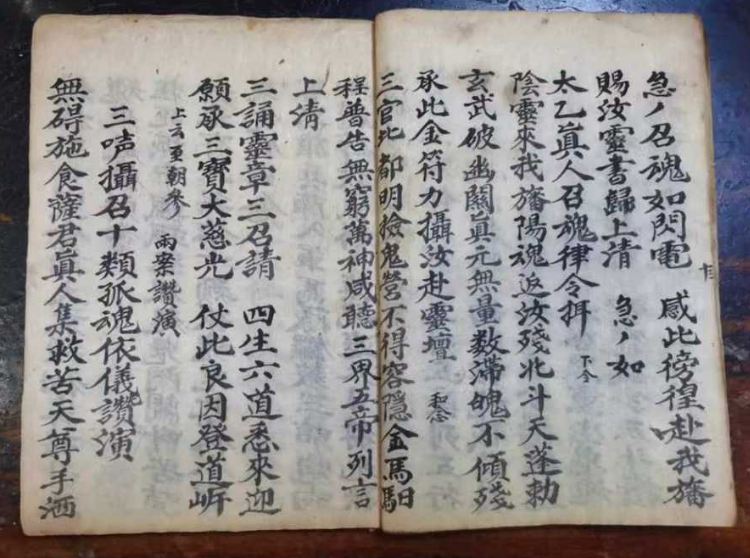 急ノ召魂如閃電 感此徬徨赴我旛
賜汝靈書歸上清 急ノ如
太乙眞人召魂律令 下仝
陰靈來我旛陽魂返汝殘北斗天蓬勅
玄武破幽關眞元無量数滯魄不傾殘
承此金符力攝汝赴靈壇 和念
三官北都明撿鬼營不得容隱金馬馹
程普告無窮萬神咸聽三界五帝列言
上清
三誦靈章三召請 四生六道悉來迎
願承三寶大慈光 仗此良因登道岍
上云至朝參 兩案讚演
三声攝召十類孤魂依儀讚演
無碍施食薩君眞人集救苦天尊手洒